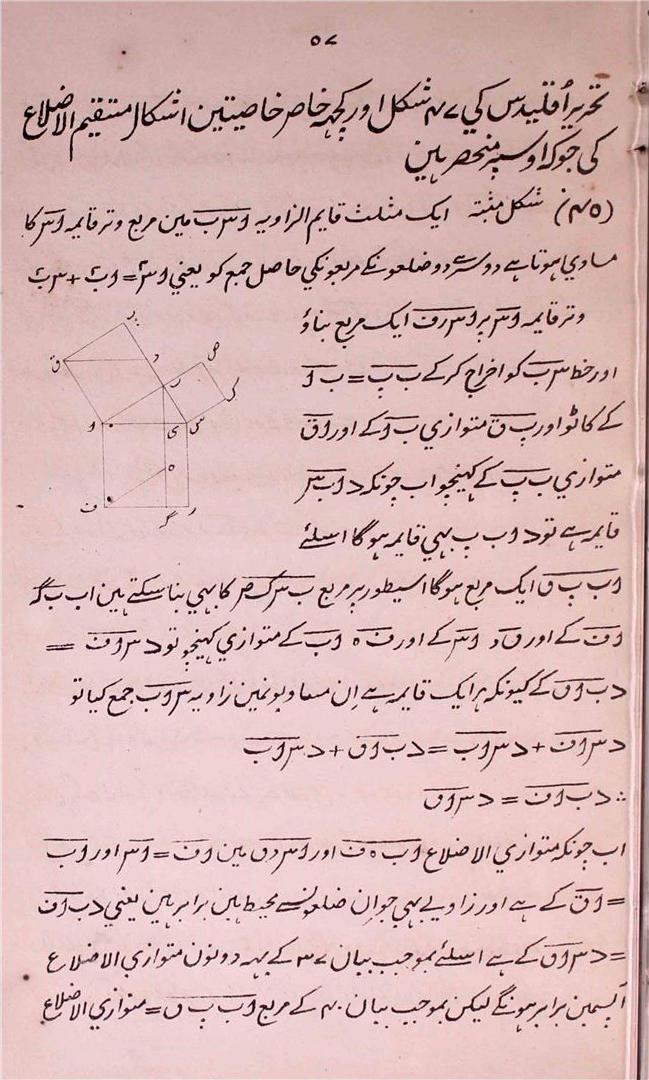 ٥٧
تحریر اُقلیدس کي ٤٧ شکل اور کچہہ خاص خاصیتین اشکال مستقیم الاضلاع
کی جو کہ اوسپر منحصر ہین
(٤٥) شکل مثبتہ ایک مثلث قایم الزاویہ ا س ب مین مربع وتر قایمہ ا س کا
مساوي ہوتا ہے دوسرے دو ضلعونکے مربعونکي حاصل جمع کو یعنی ا س٢ = ا ب٢ + س ب٢
وتر قایمہ ا س پر ا س ر ف ایک مربع بناؤ
اور خط س ب کو اخراج کرکے ب پ = ب ا
کے کاٹو اور پ ق متوازي ب ا کے اور ا ق
متوازي ب پ کے کہینچو اب چونکہ د ا ب س
قایمہ ہے تو د ا ب پ بہي قایمہ ہوگا اسلئے
ا ب پ ق ایک مربع ہوگا اسیطور پر مربع ب س ک ص کا بہي بنا سکتے ہین اب ب گ
ا ف کے اور ق د ا س کے اور ف ه ا ب کے متوازي کہینچو تو د س ا ف =
د ب ا ق کے کیونکہ ہر ایک قایمہ ہے اِن مساویونمین زاویہ س ا ب جمع کیا تو
د س ا ف + د س ا ب = د ب ا ق + د س ا ب
∴ د ب ا ف = د س ا ق
اب چونکہ متوازي الاضلاع ا ب ه ف اور ا س د ق مین ا ف = ا س اور ا ب
= ا ق کے ہے اور زاویے بہي جو اِن ضلعونسے محیط ہین برابر ہین یعني د ب ا ف
= د س ا ق کے ہے اسلئے بموجب بیان ٣٧ کے یہہ دونون متوازي الاضلاع
آپسمین برابر ہونگے لیکن بموجب بیان ٤٠ کے مربع ا ب پ ق = متوازي الاضلاع
پ
ق
د
ب
ص
ک
ا
ی
س
ه
ف
گ
ر